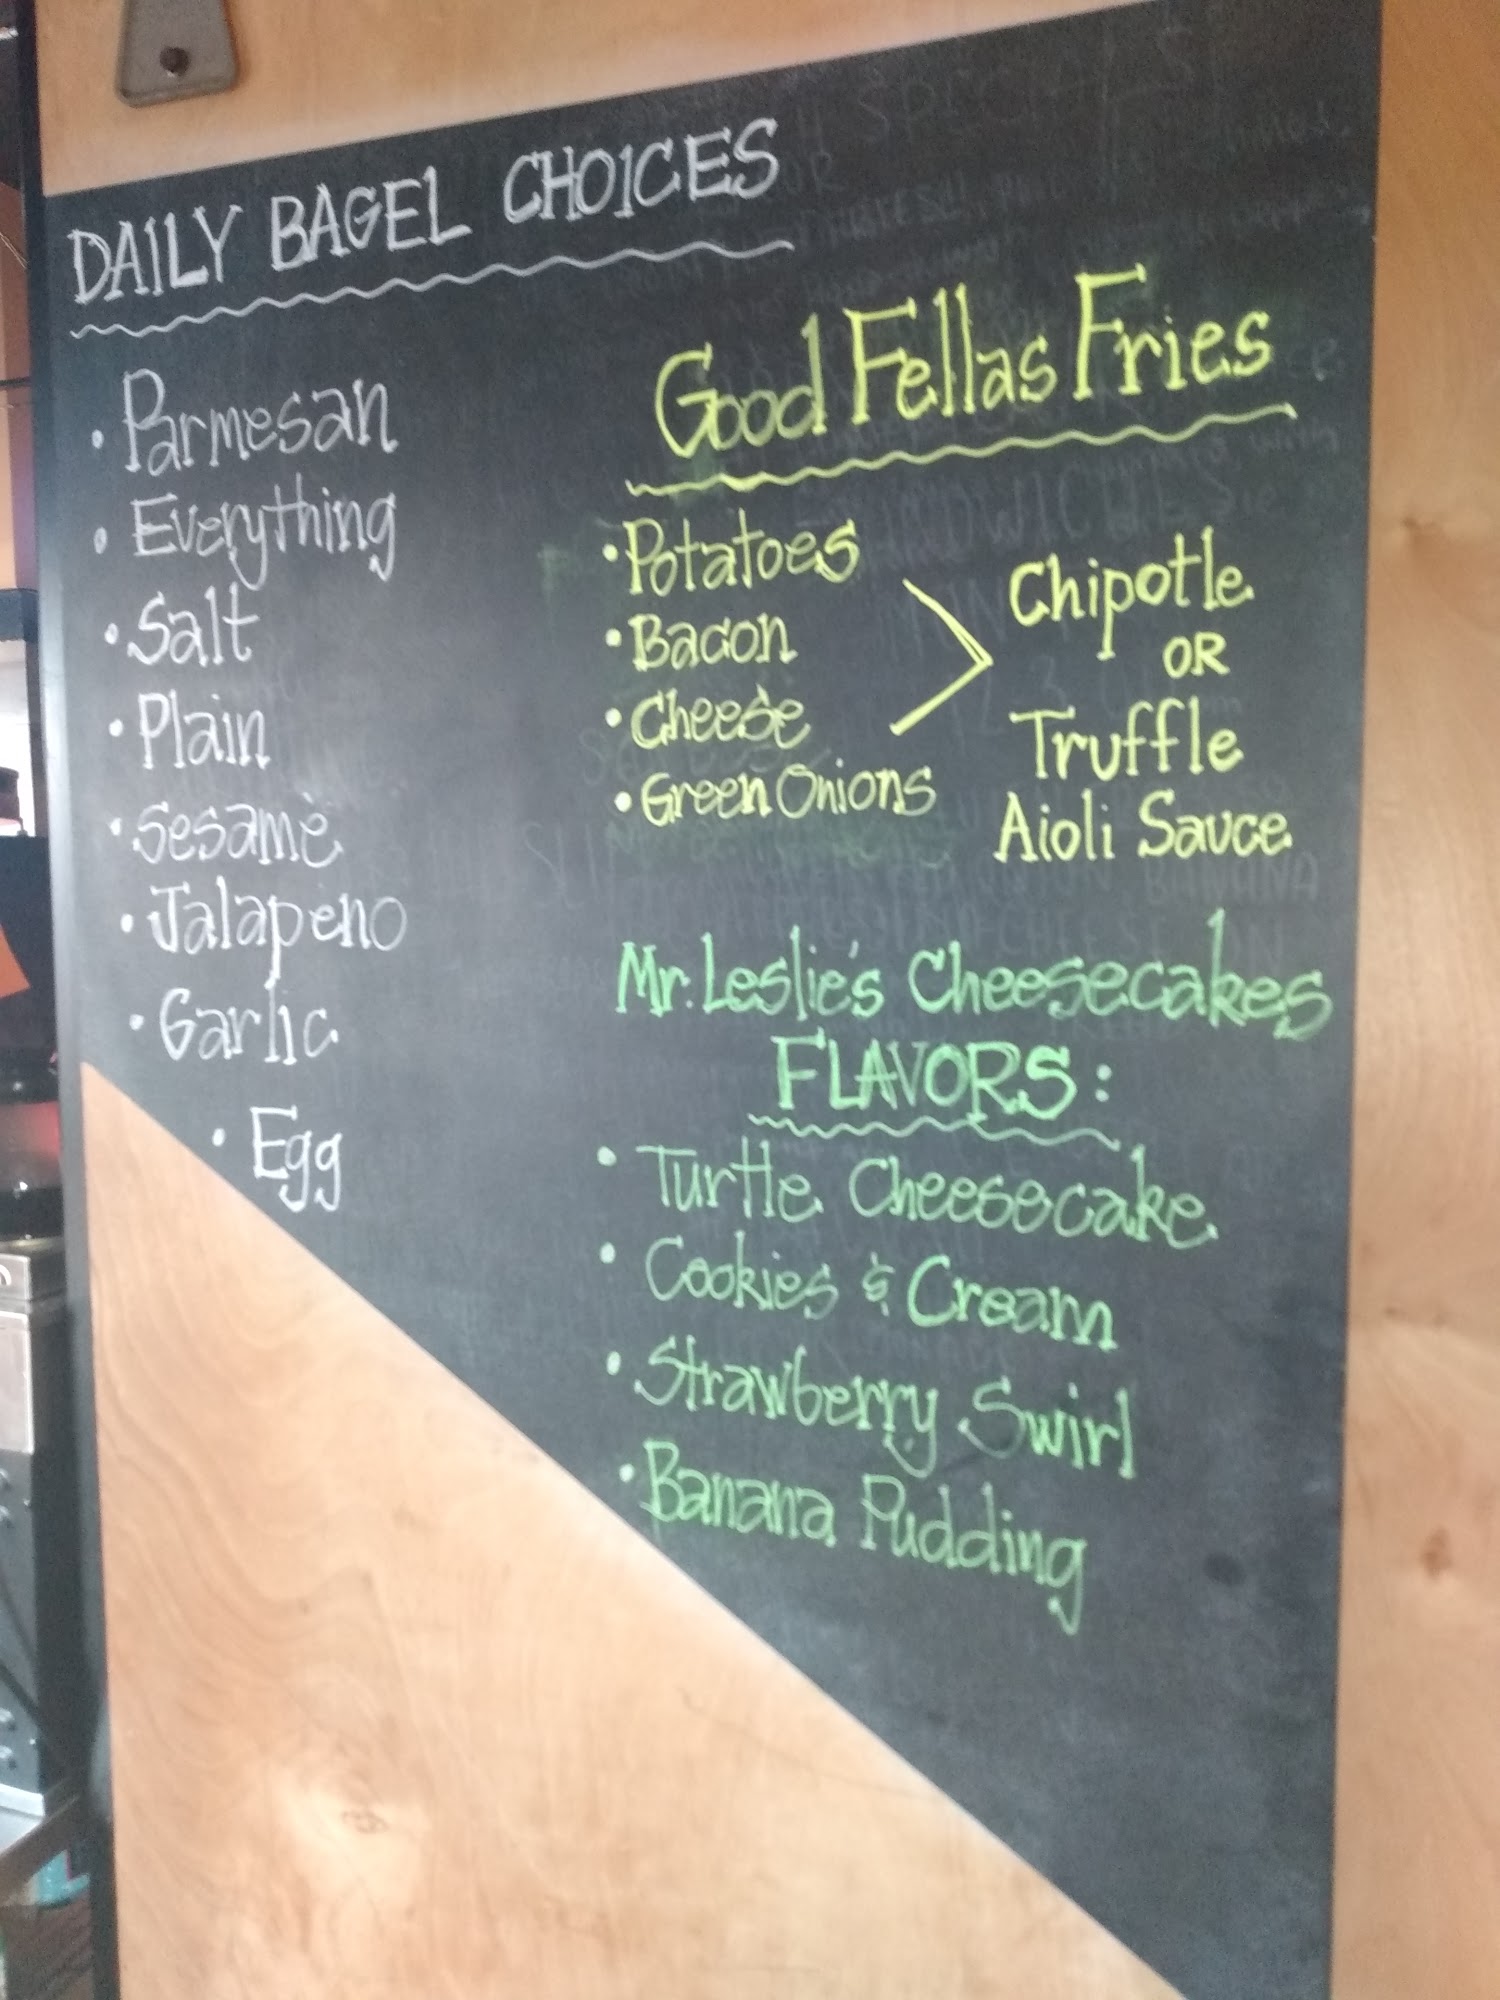 DAILY BAGEL CHOICES
• Parmesan
• Everything
• Salt
• Plain
• Sesame
• Jalapeno
• Garlic
• Egg
Good Fellas Fries
• Potatoes
• Bacon
• Cheese
• Green Onions
Chipotle
OR
Truffle
Aioli Sauce
Mr. Leslie's Cheesecakes
FLAVORS:
• Turtle Cheesecake
• Cookies & Cream
• Strawberry Swirl
• Banana Pudding